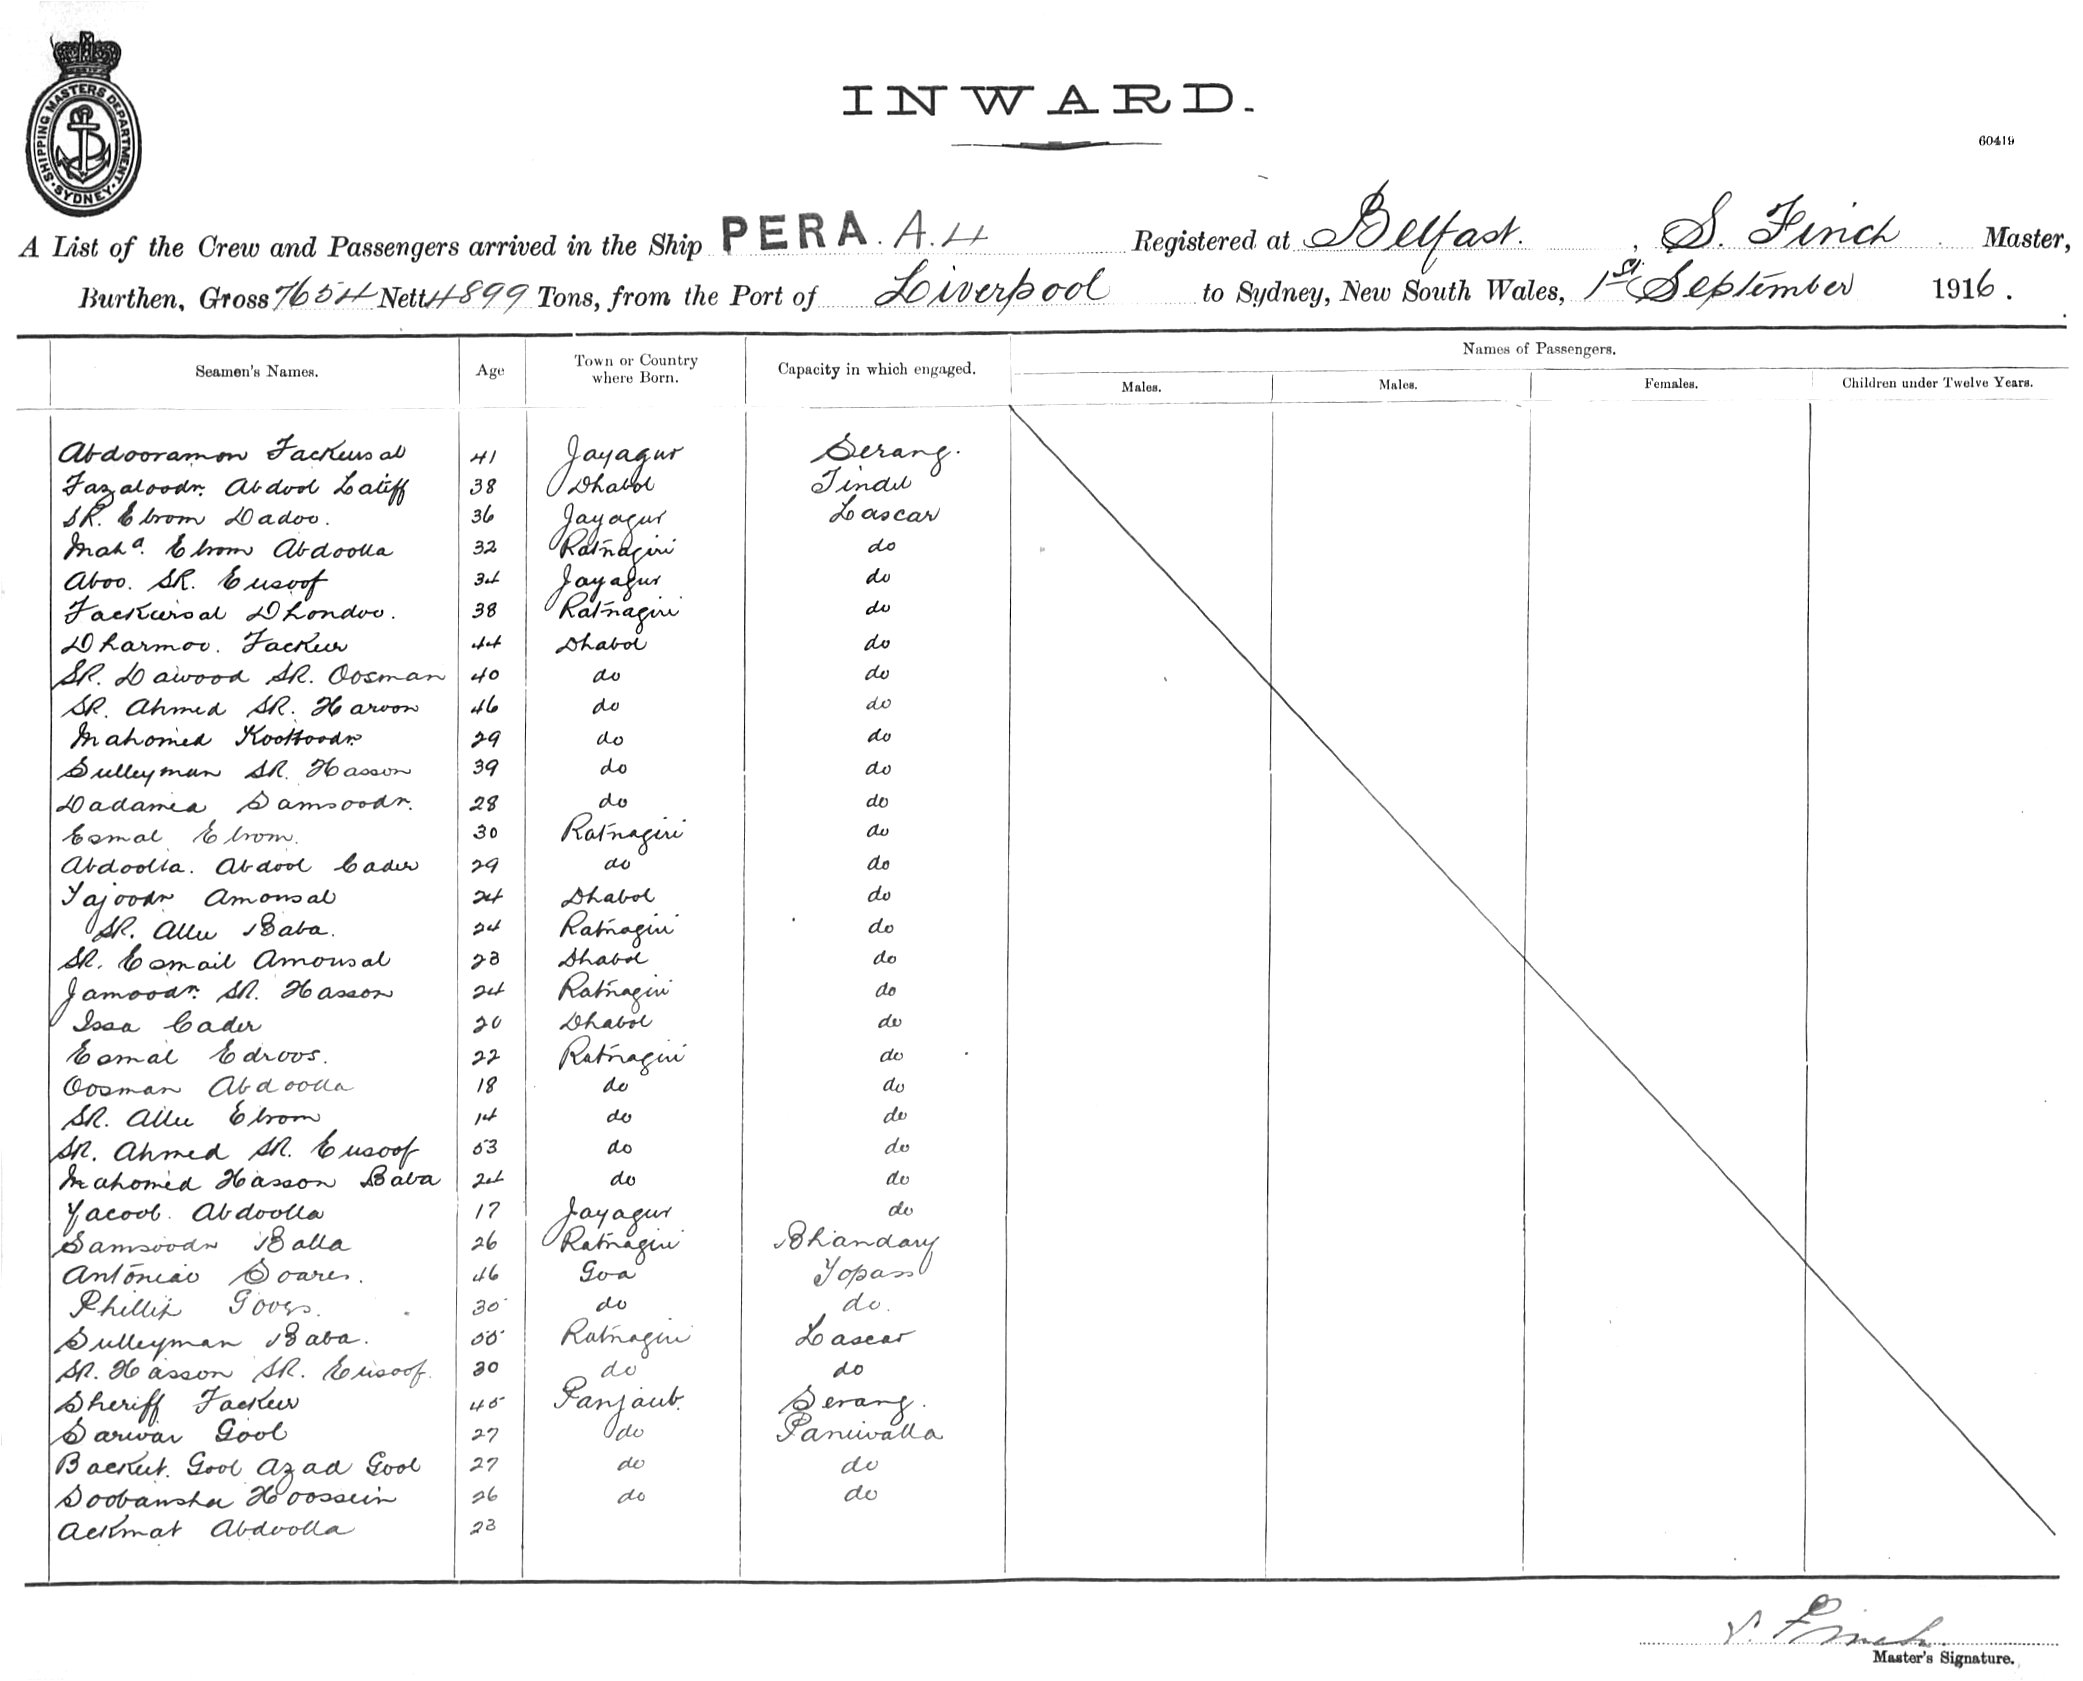 SHIPPING MASTERS DEPARTMENT
SYDNEY
INWARD.
60419
A List of the Crew and Passengers arrived in the Ship PERA. A.4 Registered at Belfast. , S. Finch Master,
Burthen, Gross 7654 Nett 4899 Tons, from the Port of Liverpool to Sydney, New South Wales, 1st September 1916.
Seamen's Names. Age Town or Country where Born. Capacity in which engaged. Names of Passengers.
Males. Males. Females. Children under Twelve Years.
Abdooramon Fackursal 41 Jayagur Serang.
Fazaloodn. Abdool Latiff 38 Dhabol Tindel
SK. Ebrom Dadoo. 36 Jayagur Lascar
Maha. Ebrom Abdoolla 32 Ratnagiri do
Aboo. SK. Eusoof 34 Jayagur do
Fackursal Dhondoo. 38 Ratnagiri do
Dharmoo. Fackur 44 Dhabol do
SK. Dawood SK. Oosman 40 do do
SK. Ahmed SK. Haroon 46 do do
Mahomed Koottoodn. 29 do do
Sulleyman SK. Hasson 39 do do
Dadamea Samsoodn. 28 do do
Esmal Ebrom. 30 Ratnagiri do
Abdoolla. Abdool Cader 29 do do
Tajoodn Amonsal 24 Dhabol do
SK. Allu Baba. 24 Ratnagiri do
SK. Esmail Amonsal 23 Dhabol do
Jamoodn. SK. Hasson 24 Ratnagiri do
Issa Cader 20 Dhabol do
Esmal Edroos. 22 Ratnagiri do
Oosman Abdoolla 18 do do
SK. Allu Ebrom 14 do do
SK. Ahmed SK. Eusoof 53 do do
Mahomed Hasson Baba 24 do do
Yacoob. Abdoolla 17 Jayagur do
Samsoodn Balla 26 Ratnagiri Bhandary
Antoniao Soares. 46 Goa Topass
Phillip 30 do do.
Sulleyman Baba. 55 Ratnagiri Lascar
SK. Hasson SK. Eusoof. 30 do do
Sheriff Fackur 45 Panjaub. Serang.
Sarwar Gool 27 do Paniwalla
Backut. Gool Azad Gool 27 do do
Soobansha Hoossein 26 do do
Ackmat Abdoolla 23
S. Finch.
Master's Signature.